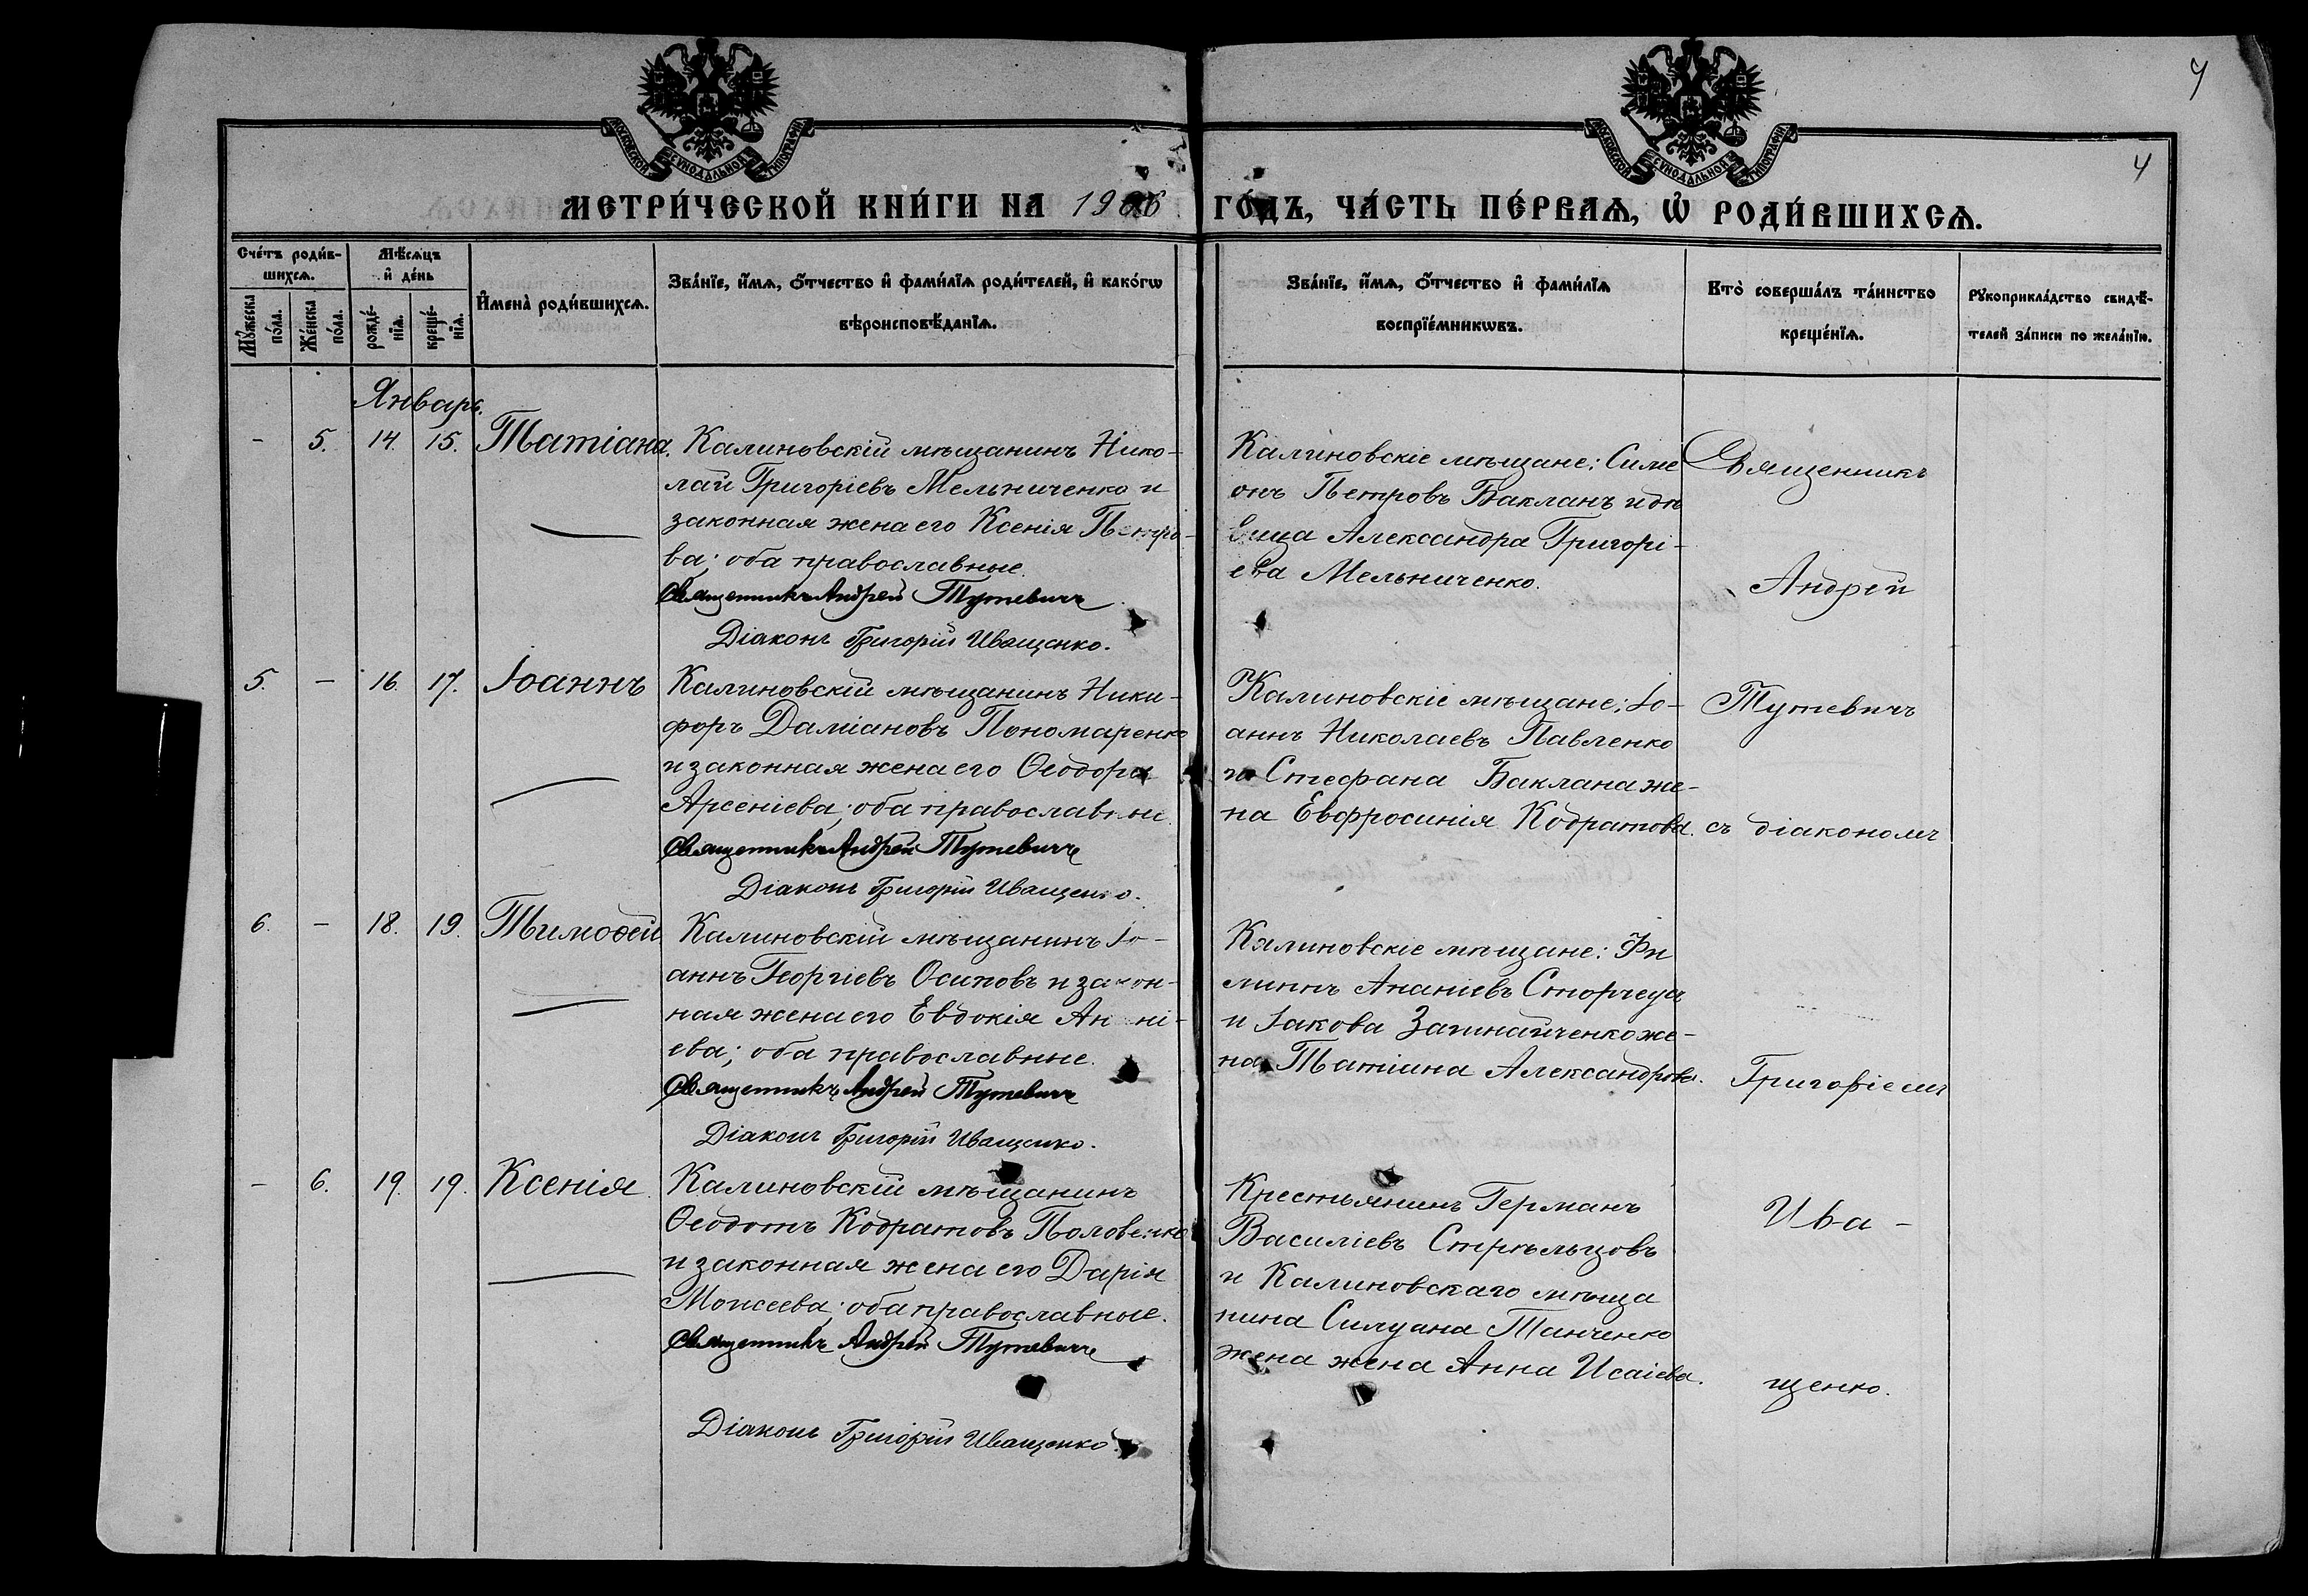 4
4
МОСКОВСКОЙ СѴНОДАЛЬНОЙ ТИПОГРАФІИ
МОСКОВСКОЙ СѴНОДАЛЬНОЙ ТИПОГРАФІИ
МЕТРИ́ЧЕСКОЙ КНИ́ГИ НА 1906 ГО́ДЪ, ЧА́СТЬ ПЕ́РВАѦ, Ѡ҆ РОДИ́ВШИХСѦ.
Сче́тъ роди́в-
шихсѧ.
Мꙋ́жеска по́ла.
Же́нска по́ла.
Мѣ́сѧцъ
и҆ де́нь
рожде́-
нїѧ.
креще́-
нїѧ.
И҆мена̀ роди́вшихсѧ.
Зва́нїе, и҆́мѧ, ѻ҆́тчество и҆ фами́лїѧ роди́телей, и҆ како́гѡ
вѣроисповѣ́данїѧ.
Зва́нїе, и҆́мѧ, ѻ҆́тчество и҆ фами́лїѧ
воспрїе́мникѡвъ.
Кто̀ соверша́лъ та́инство
креще́нїѧ.
Рꙋкоприкла́дство свидѣ́-
телей за́писи по жела́нїю.
Январь.
- 5. 14. 15. Татіана.
Калиновскій мѣщанинъ Нико-
лай Григоріевъ Мельниченко и
законная жена его Ксенія Петро-
ва; оба православные.
Священникъ Андрей Тутевичъ
Діаконъ Григорій Иващенко.
Калиновскіе мѣщане: Симе
онъ Петровъ Бакланъ и дѣ
вица Александра Григорі-
ева Мельниченко.
5. - 16. 17. Іоаннъ
Калиновскій мѣщанинъ Ники-
форъ Даміановъ Пономаренко
и законная жена его Ѳеодора
Арсеніева; оба православные.
Священникъ Андрей Тутевичъ
Діаконъ Григорій Иващенко.
Калиновскіе мѣщане: Іо-
аннъ Николаевъ Павленко
и Стефана Баклана же-
на Евфросинія Кодратова.
6. - 18. 19. Тимоѳей
Калиновскій мѣщанинъ Іо-
аннъ Георгіевъ Осиповъ и закон-
ная жена его Евдокія Анані-
ева; оба православные.
Священникъ Андрей Тутевичъ
Діаконъ Григорій Иващенко.
Калиновскіе мѣщане: Фи
липпъ Ананіевъ
и Іакова же-
на Татіана Александрова.
- 6. 19. 19. Ксенія.
Калиновскій мѣщанинъ
Ѳеодотъ Кодратовъ Половенко
и законная жена его Дарія
Моисеева; оба православные.
Священникъ Андрей Тутевичъ
Діаконъ Григорій Иващенко.
Крестьянинъ Германъ
Василіевъ Стрѣльцовъ
и Калиновскаго мѣща
нина Силуана Танченко
жена жена Анна Исаіева.
Священникъ
Андрей
Тутевичъ
съ діакономъ
Григоріемъ
Ива-
щенко.